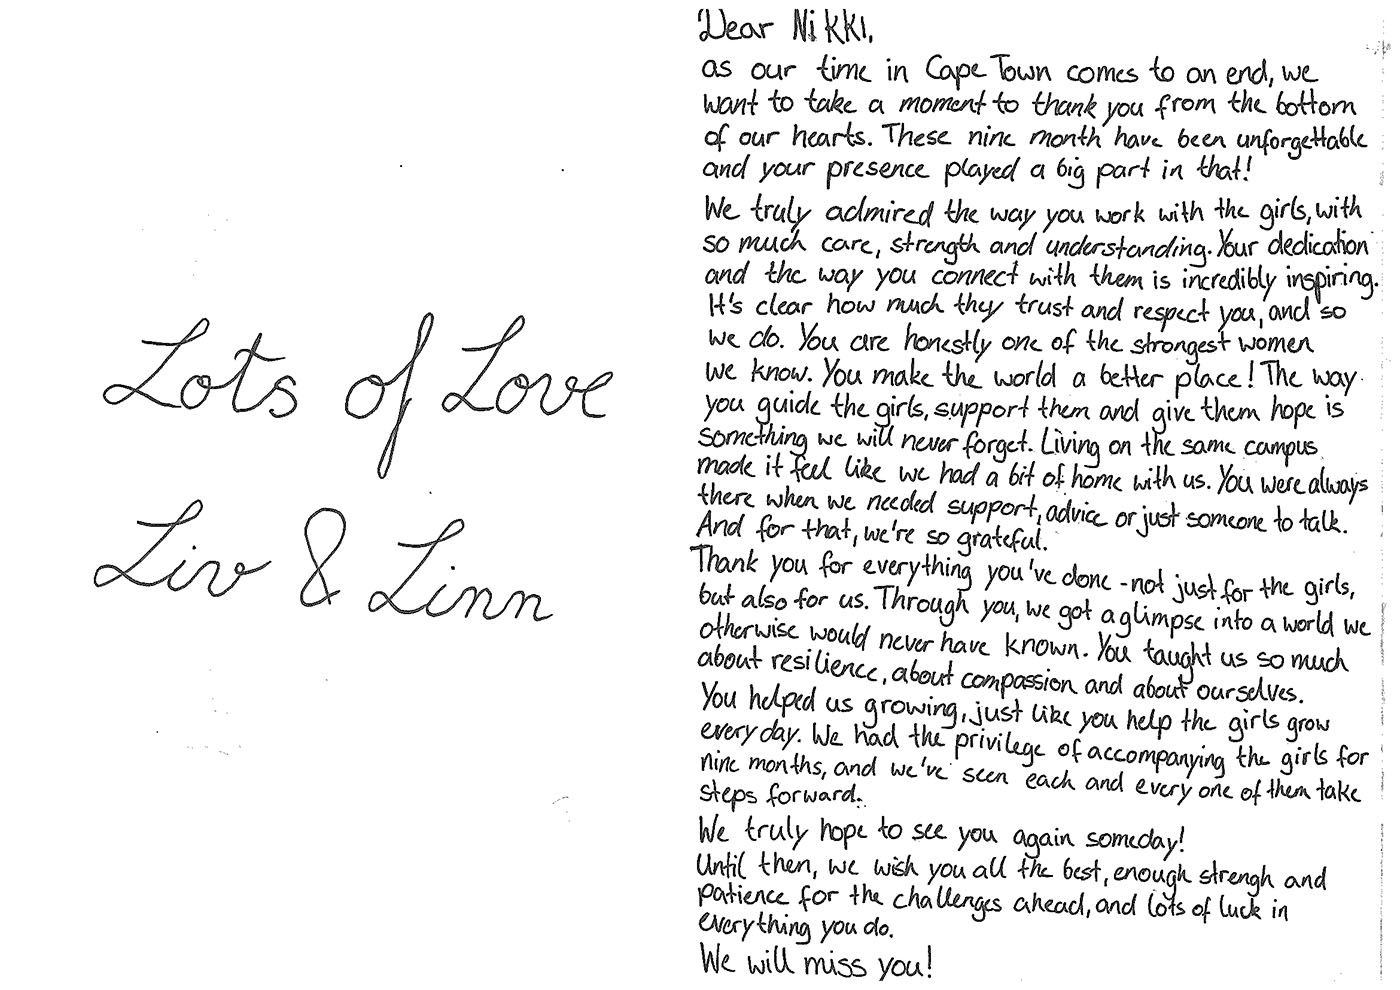 Dear Nikki,
as our time in Cape Town comes to an end, we
want to take a moment to thank you from the bottom
of our hearts. These nine month have been unforgettable
and your presence played a big part in that!
We truly admired the way you work with the girls, with
so much care, strength and understanding. Your dedication
and the way you connect with them is incredibly inspiring.
It's clear how much they trust and respect you, and so
we do. You are honestly one of the strongest women
we know. You make the world a better place! The way
you guide the girls, support them and give them hope is
something we will never forget. Living on the same campus
made it feel like we had a bit of home with us. You were always
there when we needed support, advice or just someone to talk.
And for that, we're so grateful.
Thank you for everything you've done - not just for the girls,
but also for us. Through you, we got a glimpse into a world we
otherwise would never have known. You taught us so much
about resilience, about compassion and about ourselves.
You helped us growing, just like you help the girls grow
every day. We had the privilege of accompanying the girls for
nine months, and we've seen each and every one of them take
steps forward.
We truly hope to see you again someday!
Until then, we wish you all the best, enough strengh and
patience for the challenges ahead, and lots of luck in
everything you do.
We will miss you!
Lots of Love
Liv & Linn